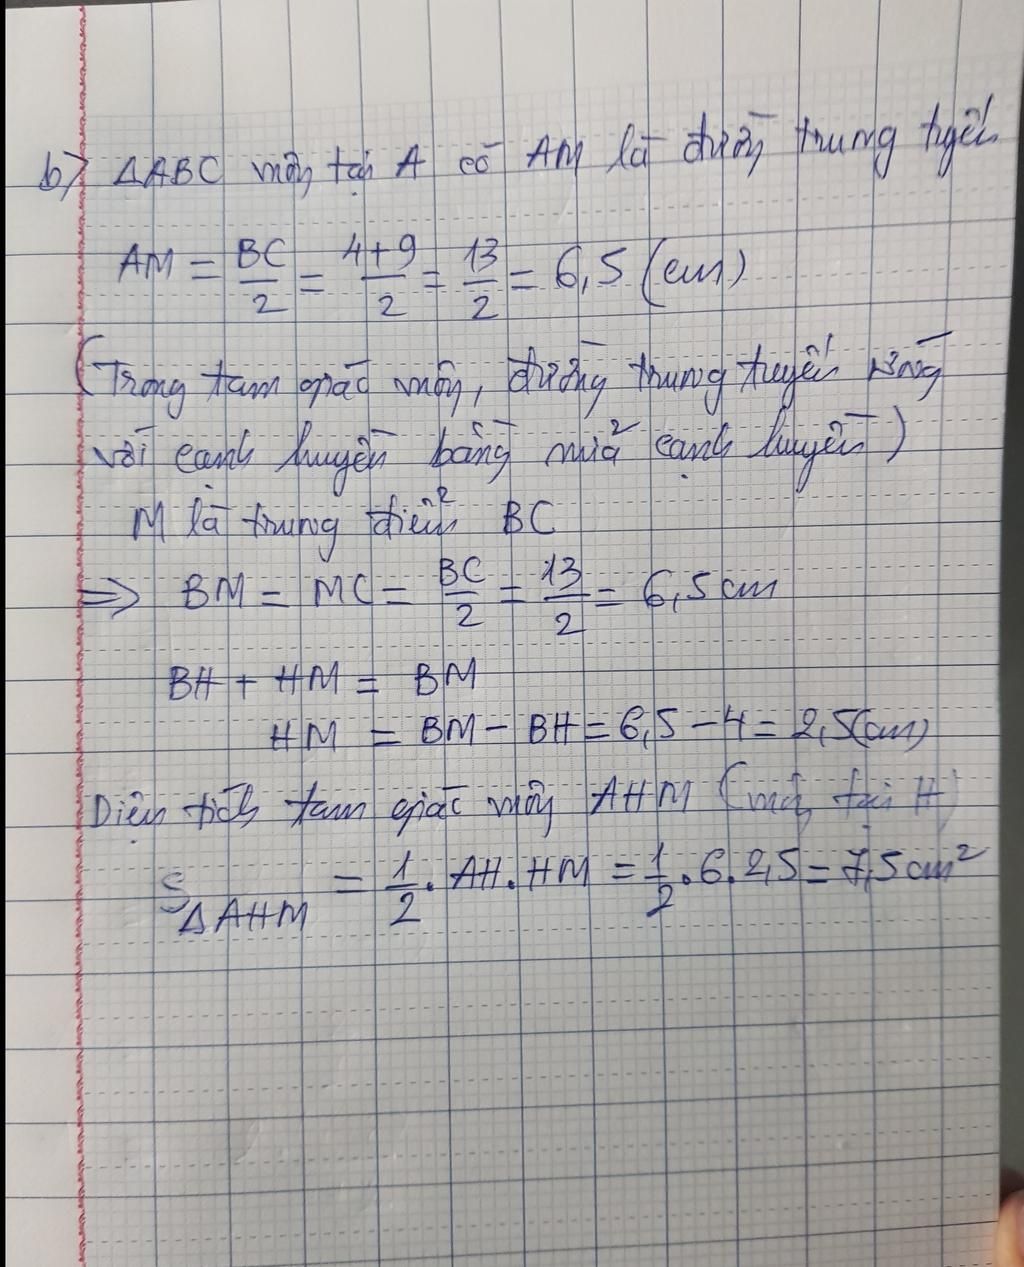 b) ΔABC vuông tại A có AM là đường trung tuyến
AM = BC/2 = 4+9/2 = 13/2 = 6,5 (cm)
(Trong tam giác vuông, đường trung tuyến ứng
với cạnh huyền bằng nửa cạnh huyền)
M là trung điểm BC
⇒ BM = MC = BC/2 = 13/2 = 6,5 cm
BH + HM = BM
HM = BM - BH = 6,5 - 4 = 2,5 (cm)
Diện tích tam giác vuông AHM (vuông tại H)
S ΔAHM = 1/2 . AH . HM = 1/2 . 6 . 2,5 = 7,5 cm²